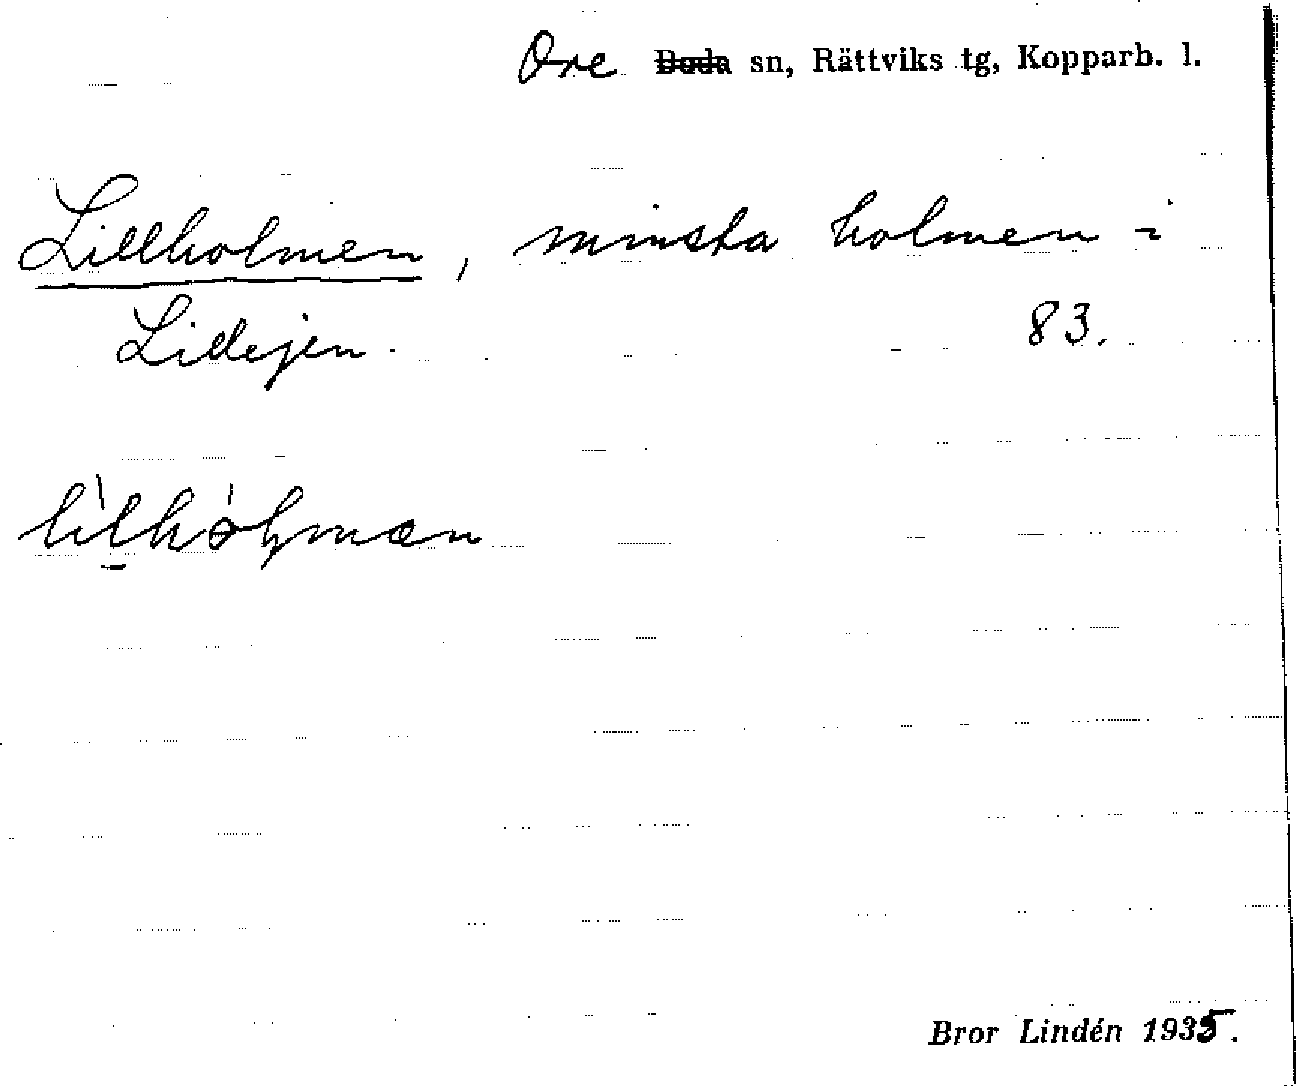 Ore Boda sn, Rättviks tg, Kopparb. l.
Lillholmen, minsta holmen i
Lillejen. 83.
Bror Lindén 1935.